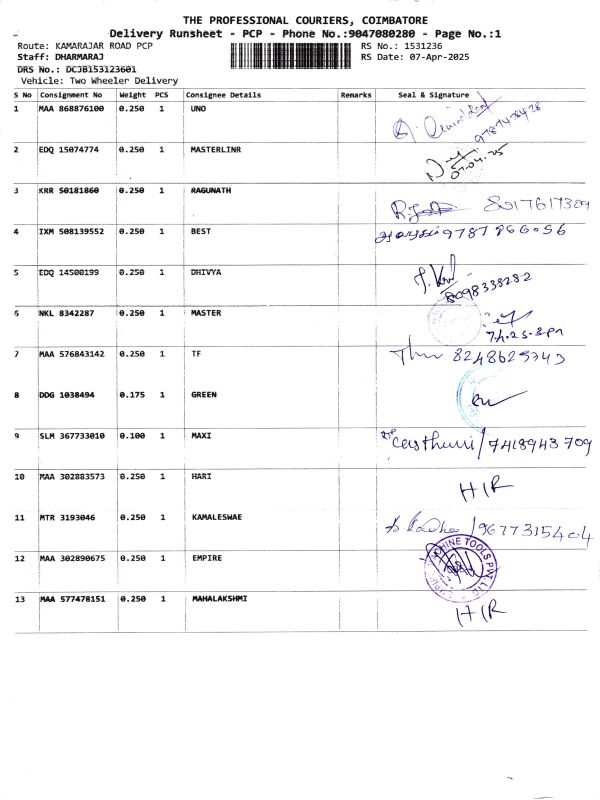 THE PROFESSIONAL COURIERS, COIMBATORE
Delivery Runsheet - PCP - Phone No.:9047080280 - Page No.:1
Route: KAMARAJAR ROAD PCP RS No.: 1531236
Staff: DHARMARAJ RS Date: 07-Apr-2025
DRS No.: DCJB153123601
Vehicle: Two Wheeler Delivery
S No Consignment No Weight PCS Consignee Details Remarks Seal & Signature
1 MAA 868876100 0.250 1 UNO
2 EDQ 15074774 0.250 1 MASTERLINR
07.04.25
3 KRR 50181860 0.250 1 RAGUNATH
8017617309
4 IXM 508139552 0.250 1 BEST 9787866056
5 EDQ 14500199 0.250 1 DHIVYA
8098338282
6 NKL 8342287 0.250 1 MASTER
7 MAA 576843142 0.250 1 TF 8248625343
8 DDG 1038494 0.175 1 GREEN
9 SLM 367733010 0.100 1 MAXI Casthuri / 7418943709
10 MAA 302883573 0.250 1 HARI
H/R
11 MTR 3193046 0.250 1 KAMALESWAE
9677315404
12 MAA 302890675 0.250 1 EMPIRE MACHINE TOOLS PVT. LTD.
13 MAA 577478151 0.250 1 MAHALAKSHMI
H/R